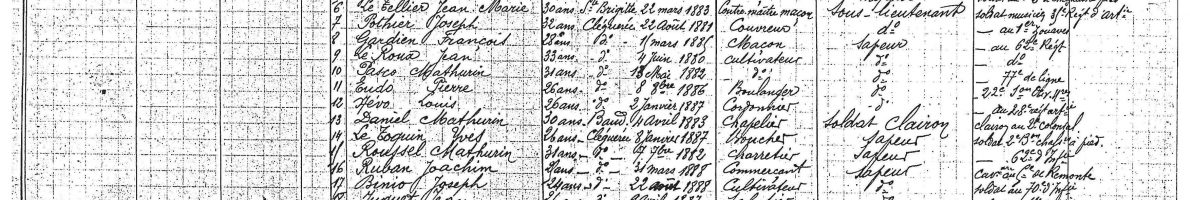 6 Le Tellier Jean Marie 30 ans Ste Brigitte 22 mars 1883 Contre maître maçon Sous-lieutenant soldat musicien Régt d'artie
7 Pothier Joseph 32 ans Cléguérec 22 Août 1881 Couvreur do — au 1er zouaves
8 Gardien François 28 ans do 1 mars 1885 Maçon Sapeur — au 62e Régt
9 Le Roux Jean 33 ans do 4 Juin 1880 cultivateur do — do
10 Pasco Mathurin 31 ans do 18 Mai 1882 do do — 77e de ligne
11 Eudo Pierre 26 ans do 8 8bre 1886 Boulanger do — 22e
12 Jévo Louis 26 ans do 2 Janvier 1887 Cordonnier d — au 28e artie
13 Daniel Mathurin 30 ans Baud 4 Avril 1883 Chapelier Soldat Clairon clairon au 2e Colonial
14 Le Toquin Yves 26 ans Cléguérec 8 Janvier 1887 Boucher Sapeur soldat 2e Bon chass. à pied
15 Roussel Mathurin 31 ans do 7 7bre 1882 Charretier Sapeur — 62e d'Infie
16 Ruban Joachim ans — do 31 mars 1888 Commerçant Sapeur cavr au Cie de Remonte
17 Binio Joseph 24 ans do 22 août 1888 Cultivateur do soldat au 70e d'Infie